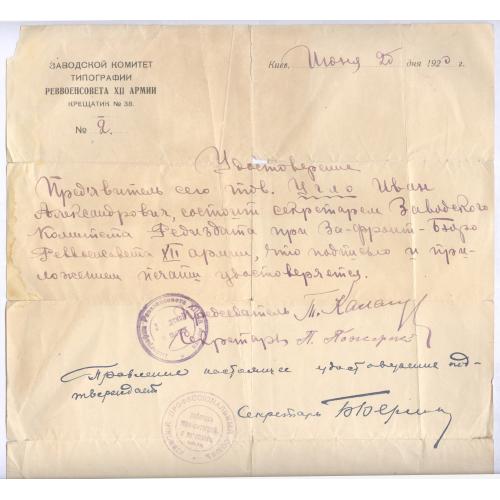 ЗАВОДСКОЙ КОМИТЕТ
ТИПОГРАФИИ
РЕВВОЕНСОВЕТА XII АРМИИ
КРЕЩАТИК № 38.
№ 2.
Киев, Июня 25 дня 1920 г.
Удостоверение
Предъявитель сего тов. Угло Иван
Александрович, состоит секретарем Заводского
Комитета Редиздата при За-фронт-Бюро
Реввоенсовета XII армии, что подписью и при-
ложением печати удостоверяется.
Председатель
Секретарь
Правление настоящее удостоверение под-
тверждает
Секретарь